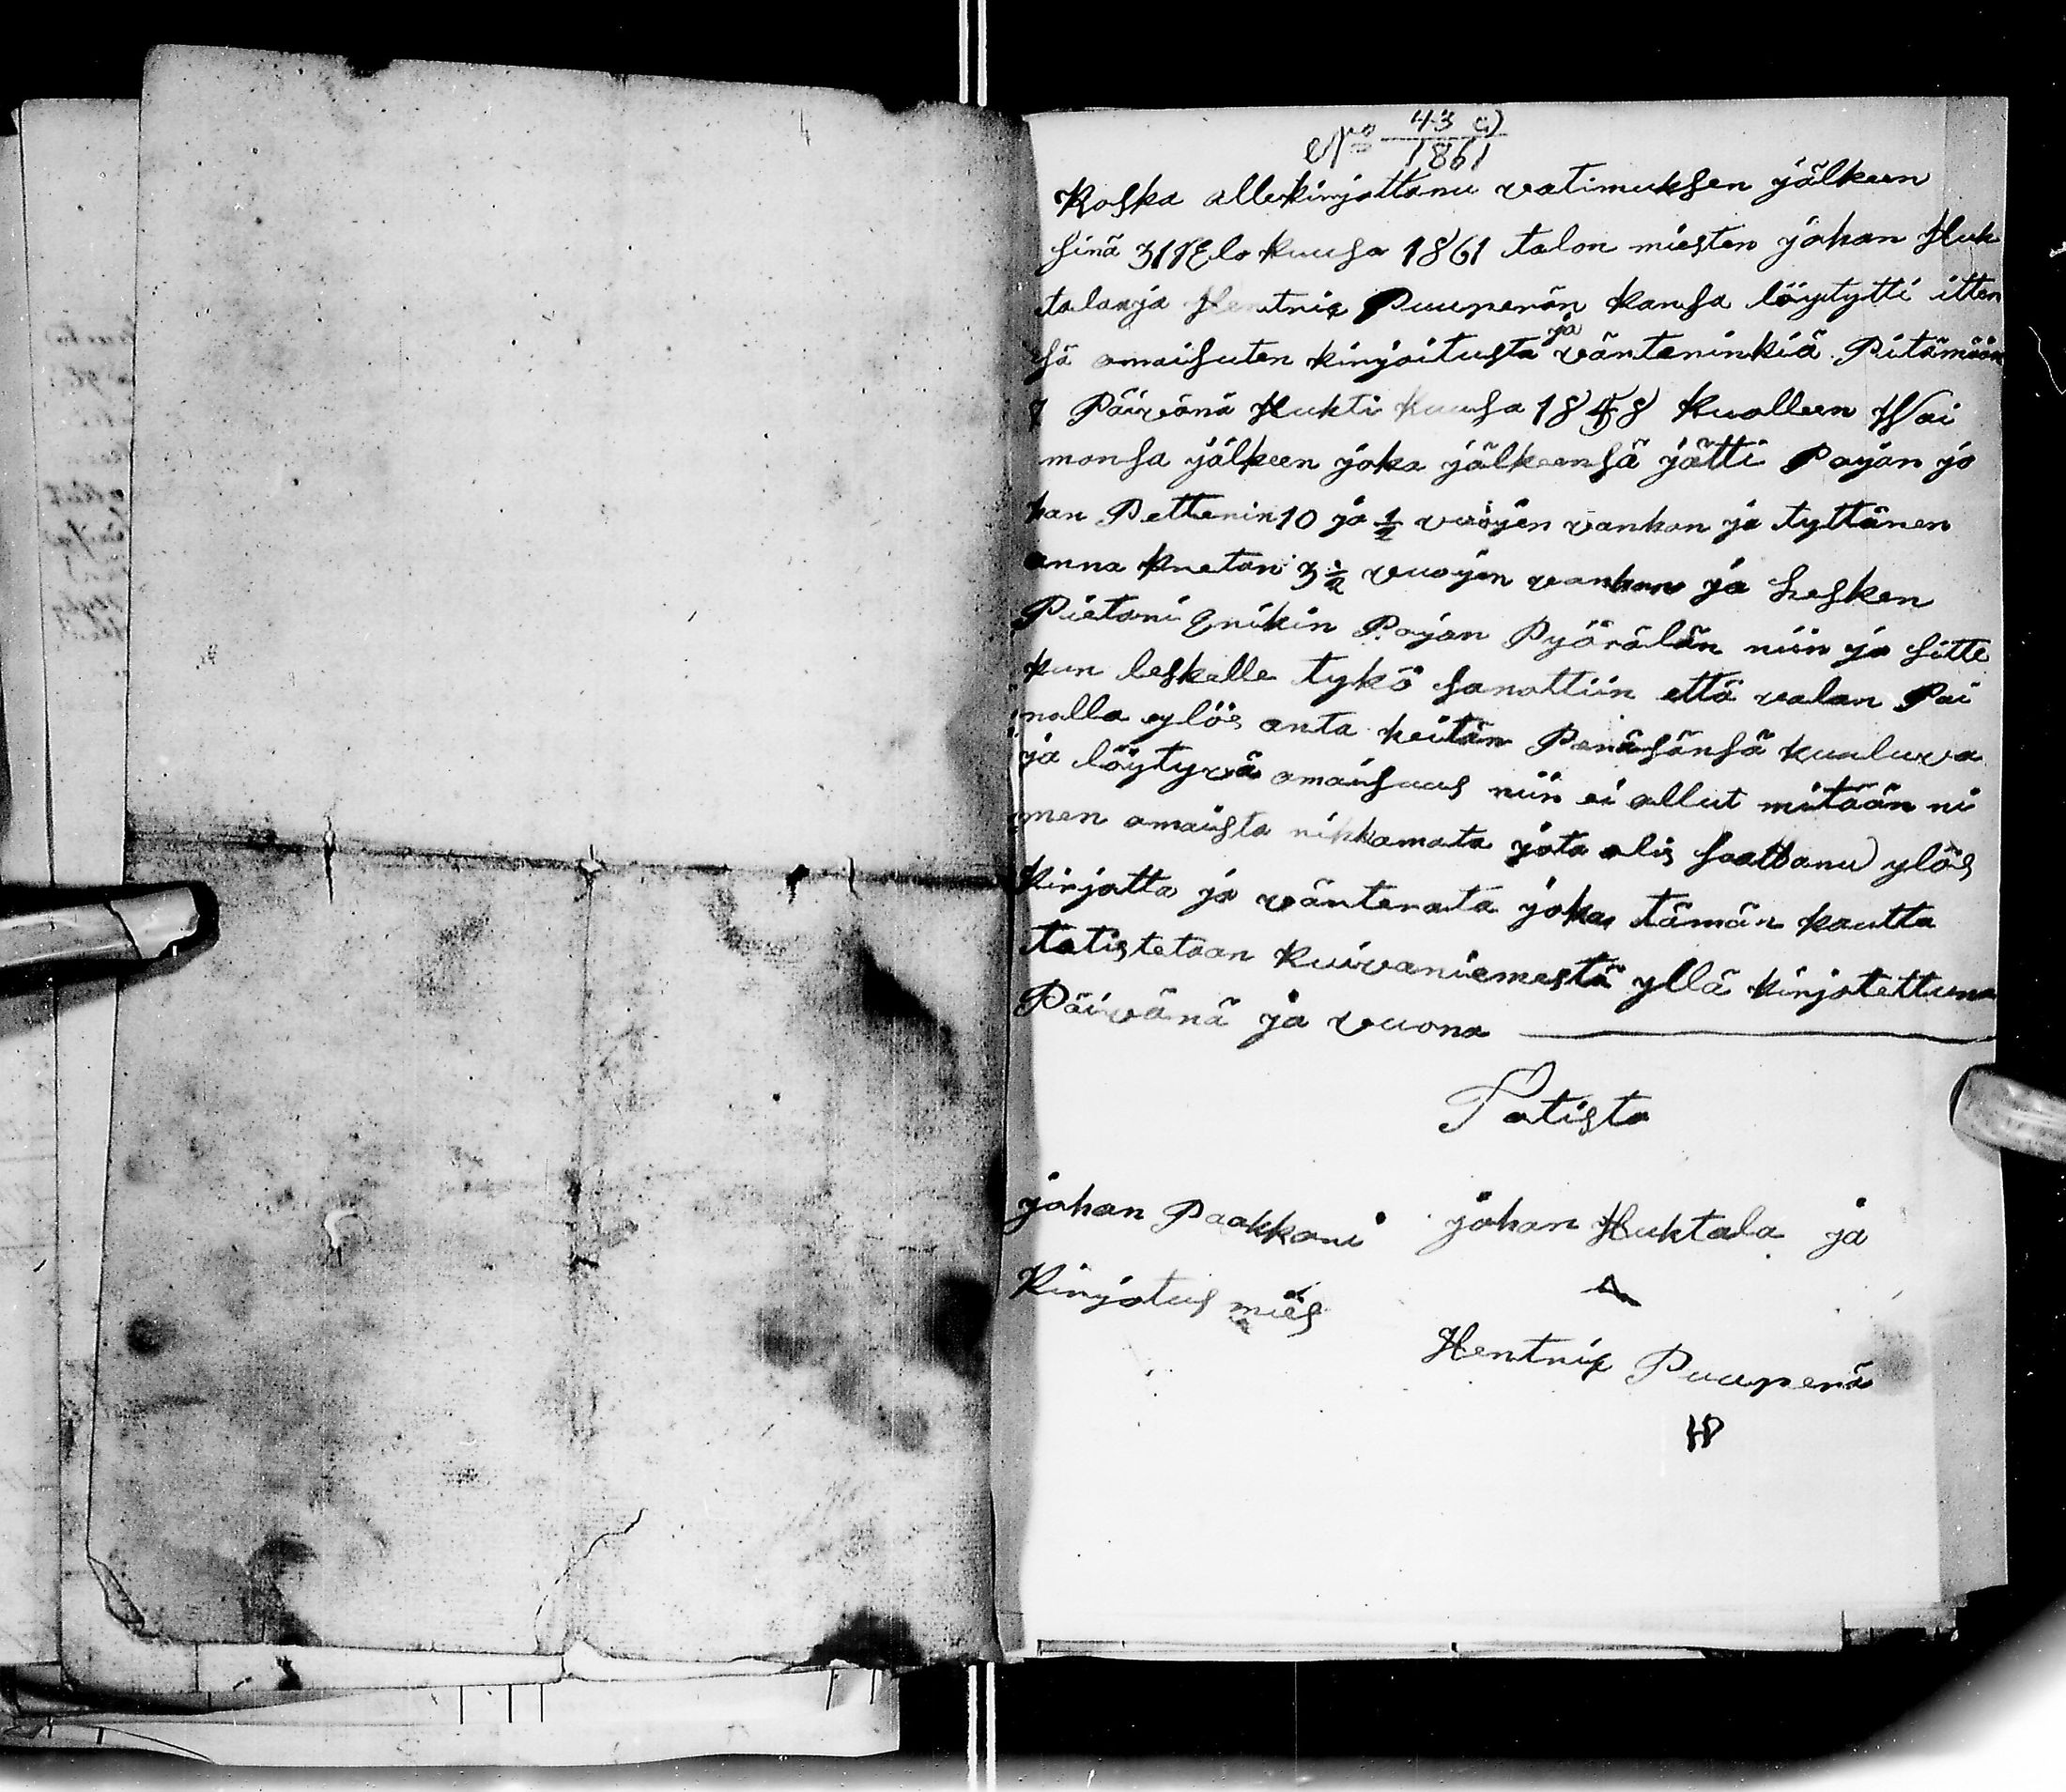 No 43 a)
1861
Koska allekirjottanu vatimuksen jälkeen
sinä 31 Elo kuusa 1861 talon miesten johan Huh
tala ja Hentrix Puuperän kansa löytytti itten
sä omaisuten kirjoitusta ja vänteninkiä Pitämään
7 Päivänä Huhti kuusa 1848 kuolleen Wai
monsa jälkeen joka jälkeensä jätti Pojan jo
han Pettenin 10 ja ½ vuojen vanhan ja tyttären
anna kretan 3 ½ vuojen vanhan ja Lesken
Pietari Erikin Pojan Pyörälän niin ja sitte
kun leskelle tykö sanottiin että valan Pai
nolla ylös anta keitän Peräsänsä kuuluva
ja löytyvä omaisuus niin ei ollut mitään ni
men omaista nihkamata jota olis saattanu ylös
kirjotta ja vänterata joka tämän kautta
totistetaan kuivaniemestä yllä kirjotettuna
Päivänä ja vuona
Totista
johan Paakkari johan Huhtala ja
Kirjotus mies
Hentrix Puuperä
HP